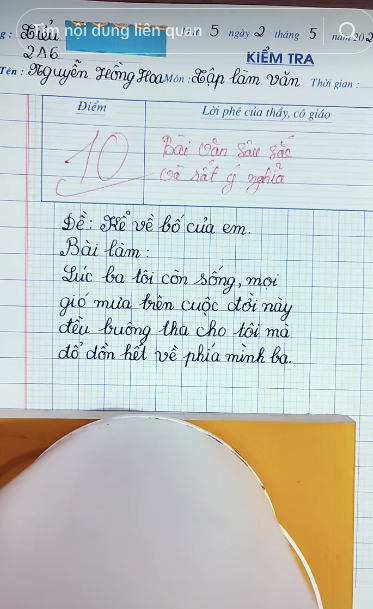 Tìm nội dung liên quan
g : Tiểu
Thứ 5 ngày 2 tháng 5 năm 202
2A6
KIỂM TRA
Tên : Nguyễn Hồng Hoa Môn : Tập làm văn Thời gian :
Điểm
Lời phê của thầy, cô giáo
10
Bài văn sâu sắc
và rất ý nghĩa
Đề : Kể về bố của em.
Bài làm :
Lúc ba tôi còn sống, mọi
gió mưa trên cuộc đời này
đều buông tha cho tôi mà
đổ dồn hết về phía mình ba.